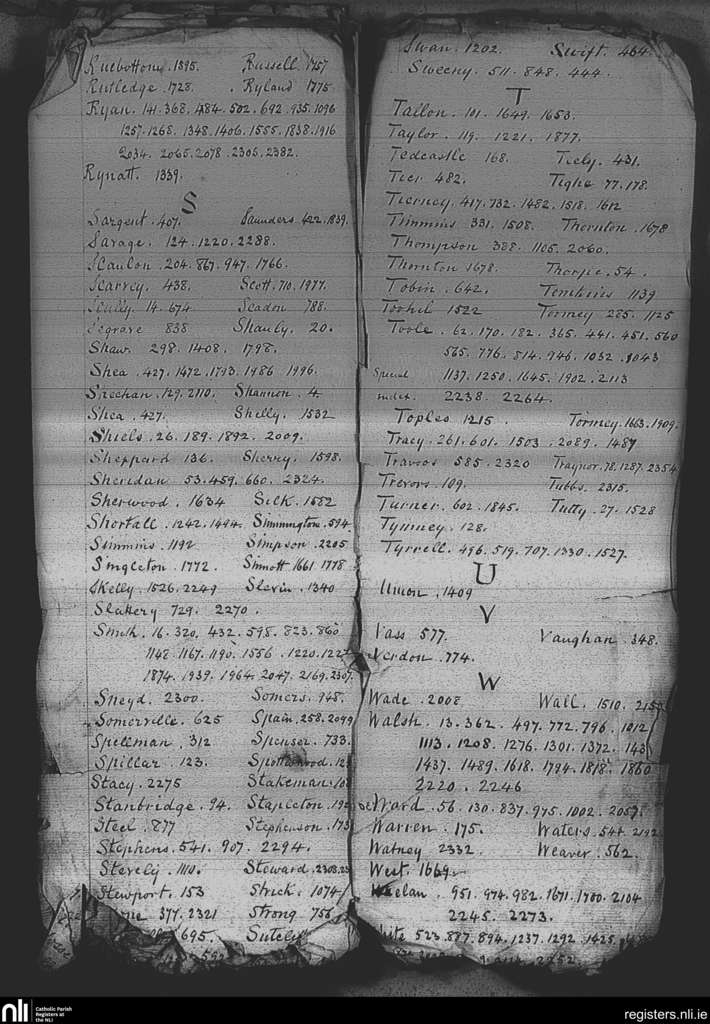 Ruebottom . 1895. Russell . 1757
Rutledge . 1728. . Ryland 1775
Ryan . 141 . 368 . 484 . 502 . 692 . 935 . 1096
1257 . 1268 . 1348 . 1406 . 1555 . 1838 . 1916
2034 . 2065 . 2078 . 2306 . 2382.
Rynatt . 1339.
S
Sargent . 407. Saunders 422 . 1839.
Savage . 124 . 1220 . 2288.
Scanlon . 204 . 867 . 947 . 1766.
Scarvey . 438. Scott . 710 . 1977.
Scully . 14 . 674 Seadon 788.
Segrave 838 Shauly . 20.
Shaw 298 . 1408 . 1798.
Shea . 427 . 1472 . 1793 . 1986 1996.
Sheehan . 129 . 2110. Shannon . 4
Shea . 427. Shelly . 1532
Shiels . 26 . 189 . 1892 . 2009.
Sheppard 136. Sherry . 1598.
Sheridan 53 . 459 . 660 . 2324.
Sherwood . 1634 Silk . 1682
Shortall . 1242 . 1494. Simmington . 594
Simmins . 1192 Simpson . 2205
Singleton . 1772. Sinnott 1661 1778
Skelly . 1526 . 2249 Slevin . 1340
Slattery 729 . 2270 .
Smith . 16 . 320 . 432 . 598 . 823 . 860
1148 . 1167 . 1190 . 1556 . 1220 .
1874 . 1939 . 1964 . 2047 . 2169 . 2307
Sneyd . 2300 Somers . 948.
Somerville . 625 Spain . 258 . 2099
Spellman . 312 Spenser . 733.
Spillar . 123. Spottswood .
Stacy . 2275 Stakeman .
Stanbridge . 94. Stapleton .
Steel . 877 Stephenson .
Stephens . 541 . 907 . 2294.
Sterely . 1110. Steward . 2303
Stewport . 153 Strick . 1074
377 . 2321 Strong 756
695 Sutely
Swan . 1202. Swift . 464
Sweeny . 511 . 848 . 444.
T
Tallon . 101 . 1649 . 1653.
Taylor . 119. 1221 . 1877.
Tedcastle 168. Tiely . 431.
Tier 482. Tighe 77 . 178.
Tierney . 417 . 732 . 1482 . 1518 . 1612
Timmins 331 . 1508. Thornton . 1678
Thompson 388 . 1165 . 2060.
Thornton 1678. Thorpe . 54 .
Tobin . 642. Tomkins 1139
Toohil 1522 Tormey 285 . 1125
Toole . 62 . 170 . 182 . 365 . 441 . 451 . 560
565 . 776 . 814 . 946 . 1032 . 1043
Special 1137 . 1250 . 1645 . 1902 . 2113
index . 2238 . 2264.
Toples 1215 . Tormey . 1663 . 1909.
Tracy . 261 . 601 . 1503 . 2089 . 1487
Travors 585 . 2320 Traynor . 78 . 1287 . 2354
Trevors . 109. Tubbs . 2315.
Turner . 602 . 1845. Tutty . 27 . 1528
Tynney . 128.
Tyrrell . 496 . 519 . 707 . 1330 . 1527.
U
Union . 1409
V
Vass 577. Vaughan . 348.
Verdon . 774.
W
Wade . 2008 Wall . 1510 .
Walsh . 13 . 362 . 497 . 772 . 796 . 1012
1113 . 1208 . 1276 . 1301 . 1372 .
1437 . 1489 . 1618 . 1794 . 1818 . 1860
2220 . 2246
Ward . 56 . 130 . 837 . 975 . 1002 . 2057
Warren . 175. Waters . 544 . 2192
Watney 2332 . Weaver . 562.
West . 1669
951 . 974 . 982 . 1671 . 1700 . 2104
2245 . 2273.
523 . 887 . 894 . 1237 . 1292 . 1425
nli Catholic Parish
Registers at
the NLI
registers.nli.ie